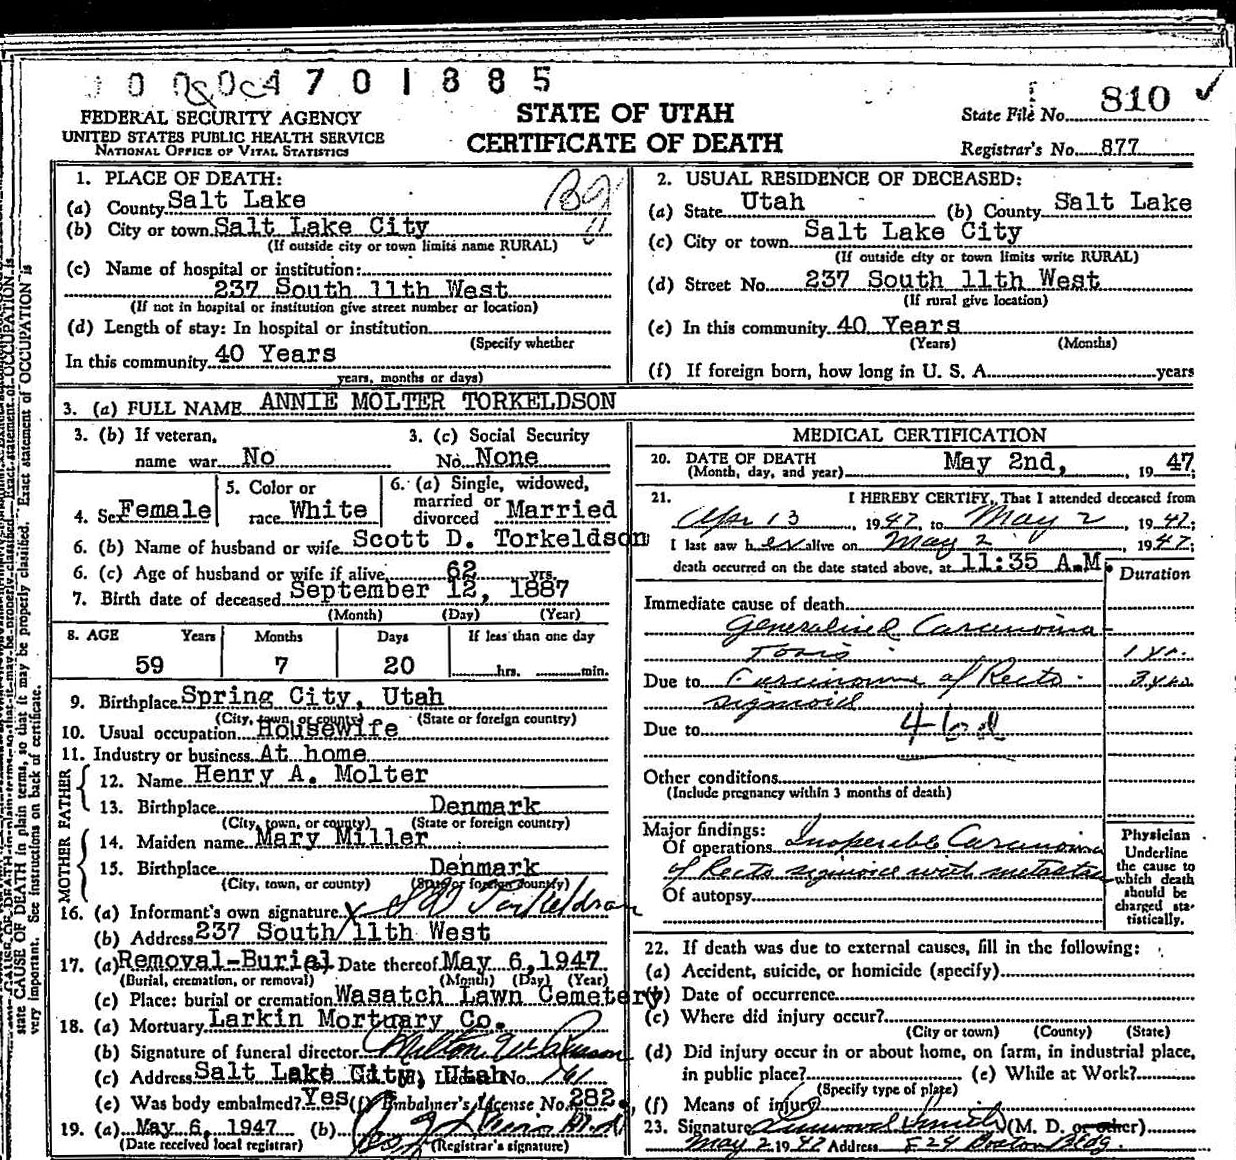 0 0 4 7 0 1 8 8 5
FEDERAL SECURITY AGENCY
UNITED STATES PUBLIC HEALTH SERVICE
NATIONAL OFFICE OF VITAL STATISTICS
STATE OF UTAH
CERTIFICATE OF DEATH
State File No. 810
Registrar's No. 877
1. PLACE OF DEATH:
(a) County Salt Lake
(b) City or town Salt Lake City
(If outside city or town limits name RURAL)
(c) Name of hospital or institution:
237 South 11th West
(If not in hospital or institution give street number or location)
(d) Length of stay: In hospital or institution
(Specify whether
In this community 40 Years
years, months or days)
2. USUAL RESIDENCE OF DECEASED:
(a) State Utah (b) County Salt Lake
(c) City or town Salt Lake City
(If outside city or town limits write RURAL)
(d) Street No. 237 South 11th West
(If rural give location)
(e) In this community 40 Years
(Years) (Months)
(f) If foreign born, how long in U. S. A. years
3. (a) FULL NAME ANNIE MOLTER TORKELDSON
3. (b) If veteran,
name war No
3. (c) Social Security
No. None
4. Sex Female
5. Color or
race White
6. (a) Single, widowed,
married or
divorced Married
6. (b) Name of husband or wife Scott D. Torkeldson
6. (c) Age of husband or wife if alive 62 yrs.
7. Birth date of deceased September 12, 1887
(Month) (Day) (Year)
8. AGE Years Months Days If less than one day
59 7 20 hrs. min.
9. Birthplace Spring City, Utah
(City, town, or county) (State or foreign country)
10. Usual occupation Housewife
11. Industry or business At home
FATHER
12. Name Henry A. Molter
13. Birthplace Denmark
(City, town, or county) (State or foreign country)
MOTHER
14. Maiden name Mary Miller
15. Birthplace Denmark
(City, town, or county) (State or foreign country)
16. (a) Informant's own signature X S D Torkeldson
(b) Address 237 South 11th West
17. (a) Removal-Burial (b) Date thereof May 6, 1947
(Burial, cremation, or removal) (Month) (Day) (Year)
(c) Place: burial or cremation Wasatch Lawn Cemetery
18. (a) Mortuary Larkin Mortuary Co.
(b) Signature of funeral director
(c) Address Salt Lake City, Utah No.
(e) Was body embalmed? Yes (f) Embalmer's License No. 282
19. (a) May 6, 1947 (b)
(Date received local registrar) (Registrar's signature)
MEDICAL CERTIFICATION
20. DATE OF DEATH May 2nd, , 1947
(Month, day, and year)
21. I HEREBY CERTIFY, That I attended deceased from
Apr 13, 1947, to May 2, 1947;
I last saw her alive on May 2 1947;
death occurred on the date stated above, at 11:35 A.M.
Duration
Immediate cause of death
Generalized Carcinoma-
tosis 1 yr.
Due to Carcinoma of Recto- 3 yrs
sigmoid
Due to 46d
Other conditions
(Include pregnancy within 3 months of death)
Major findings:
Of operations Inoperable Carcinoma
of Recto sigmoid with metastas
Of autopsy
Physician
Underline
the cause to
which death
should be
charged sta-
tistically.
22. If death was due to external causes, fill in the following:
(a) Accident, suicide, or homicide (specify)
(b) Date of occurrence
(c) Where did injury occur?
(City or town) (County) (State)
(d) Did injury occur in or about home, on farm, in industrial place,
in public place? (e) While at Work?
(Specify type of place)
(f) Means of injury
23. Signature Smith (M. D. or other)
May 2 1947 Address 824 Boston Bldg.
state CAUSE OF DEATH in plain terms, so that it may be properly classified. Exact statement of OCCUPATION is
very important. See instructions on back of certificate.